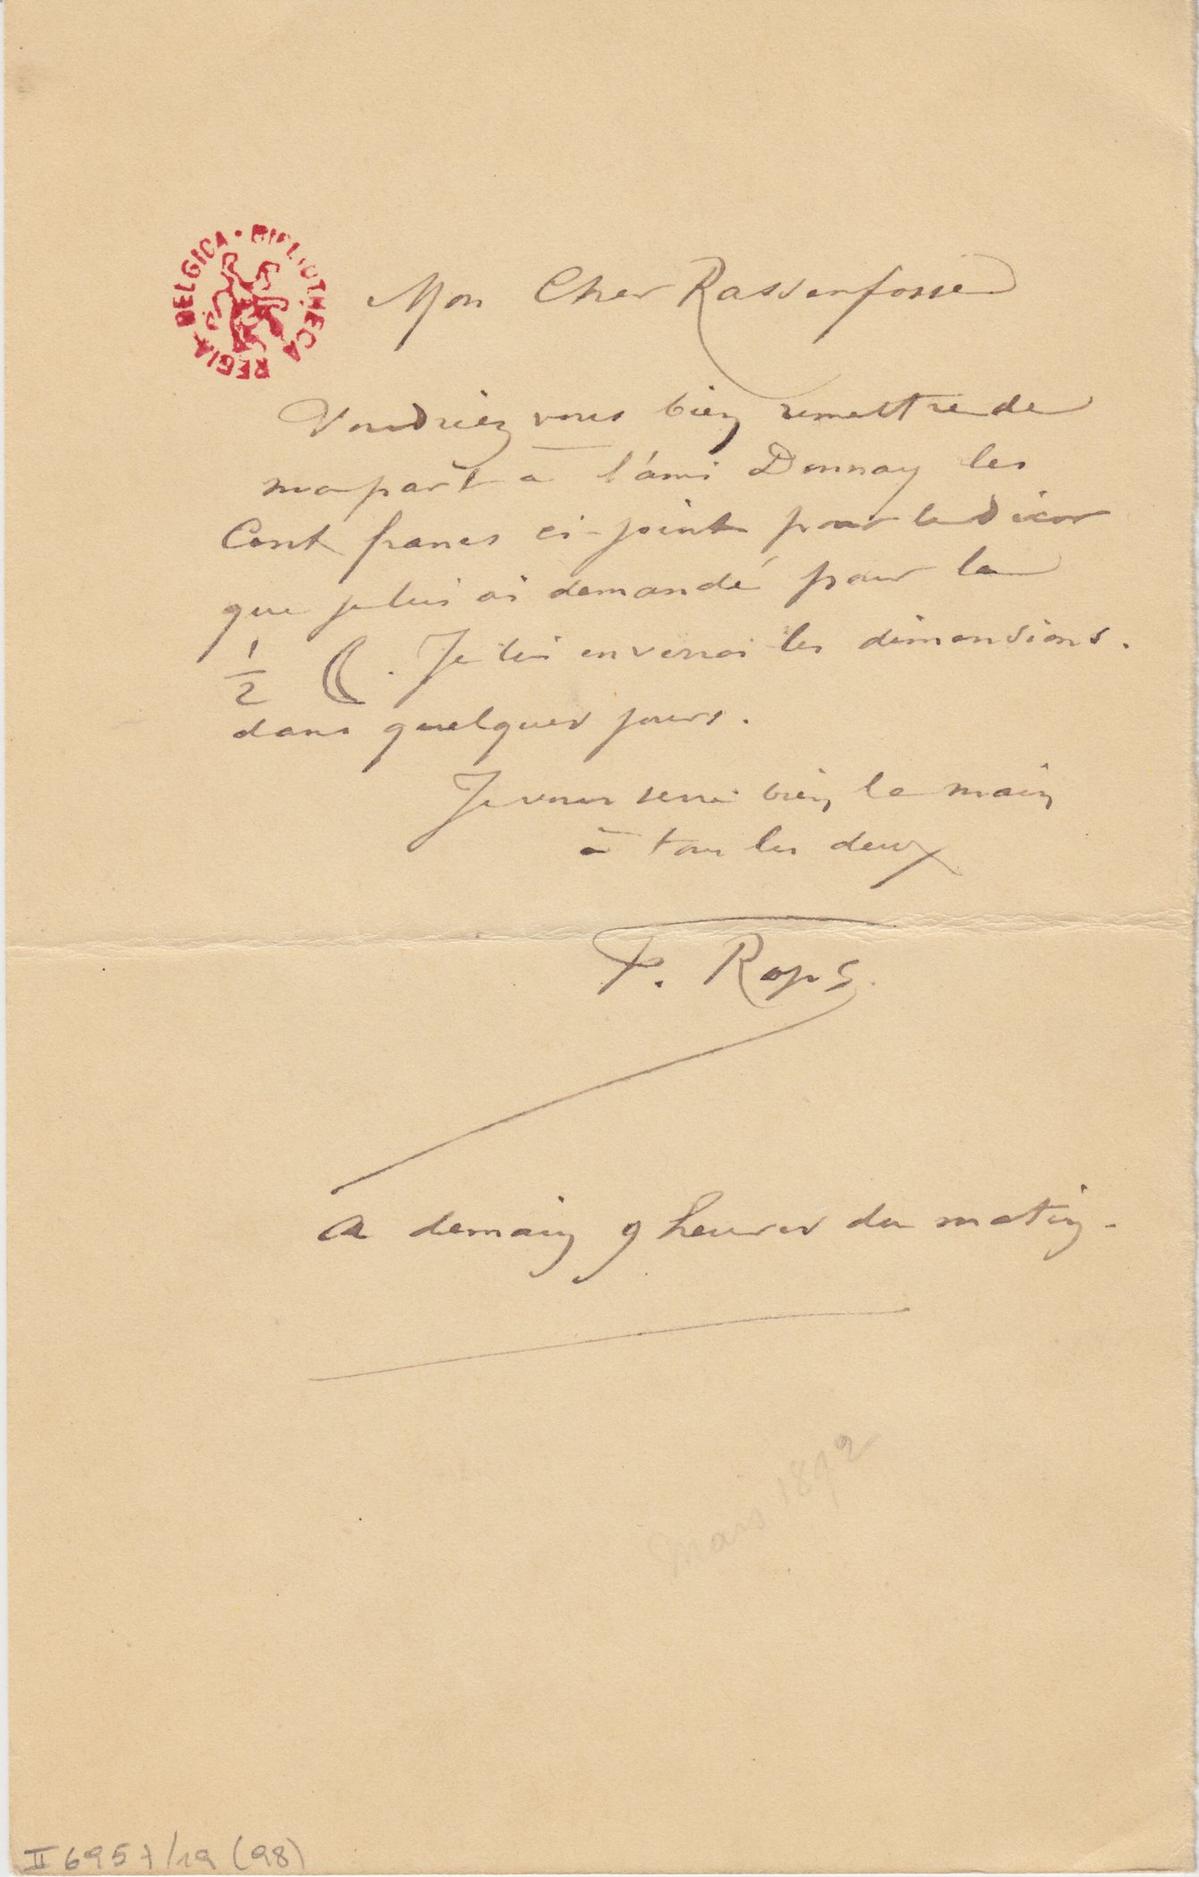 BELGICA · BIBLIOTHECA REGIA
Mon Cher Rassenfosse
Voudriez vous bien remettre de
ma part à l'ami Donnay les
Cent francs ci-joint pour le décor
que je lui ai demandé pour la
1/2 ☾. Je lui enverrai les dimensions.
dans quelques jours.
Je vous serre bien la main
à tous les deux
F. Rops.
A demain 9 heures du matin.
Mars 1892
II 6957/19 (98)